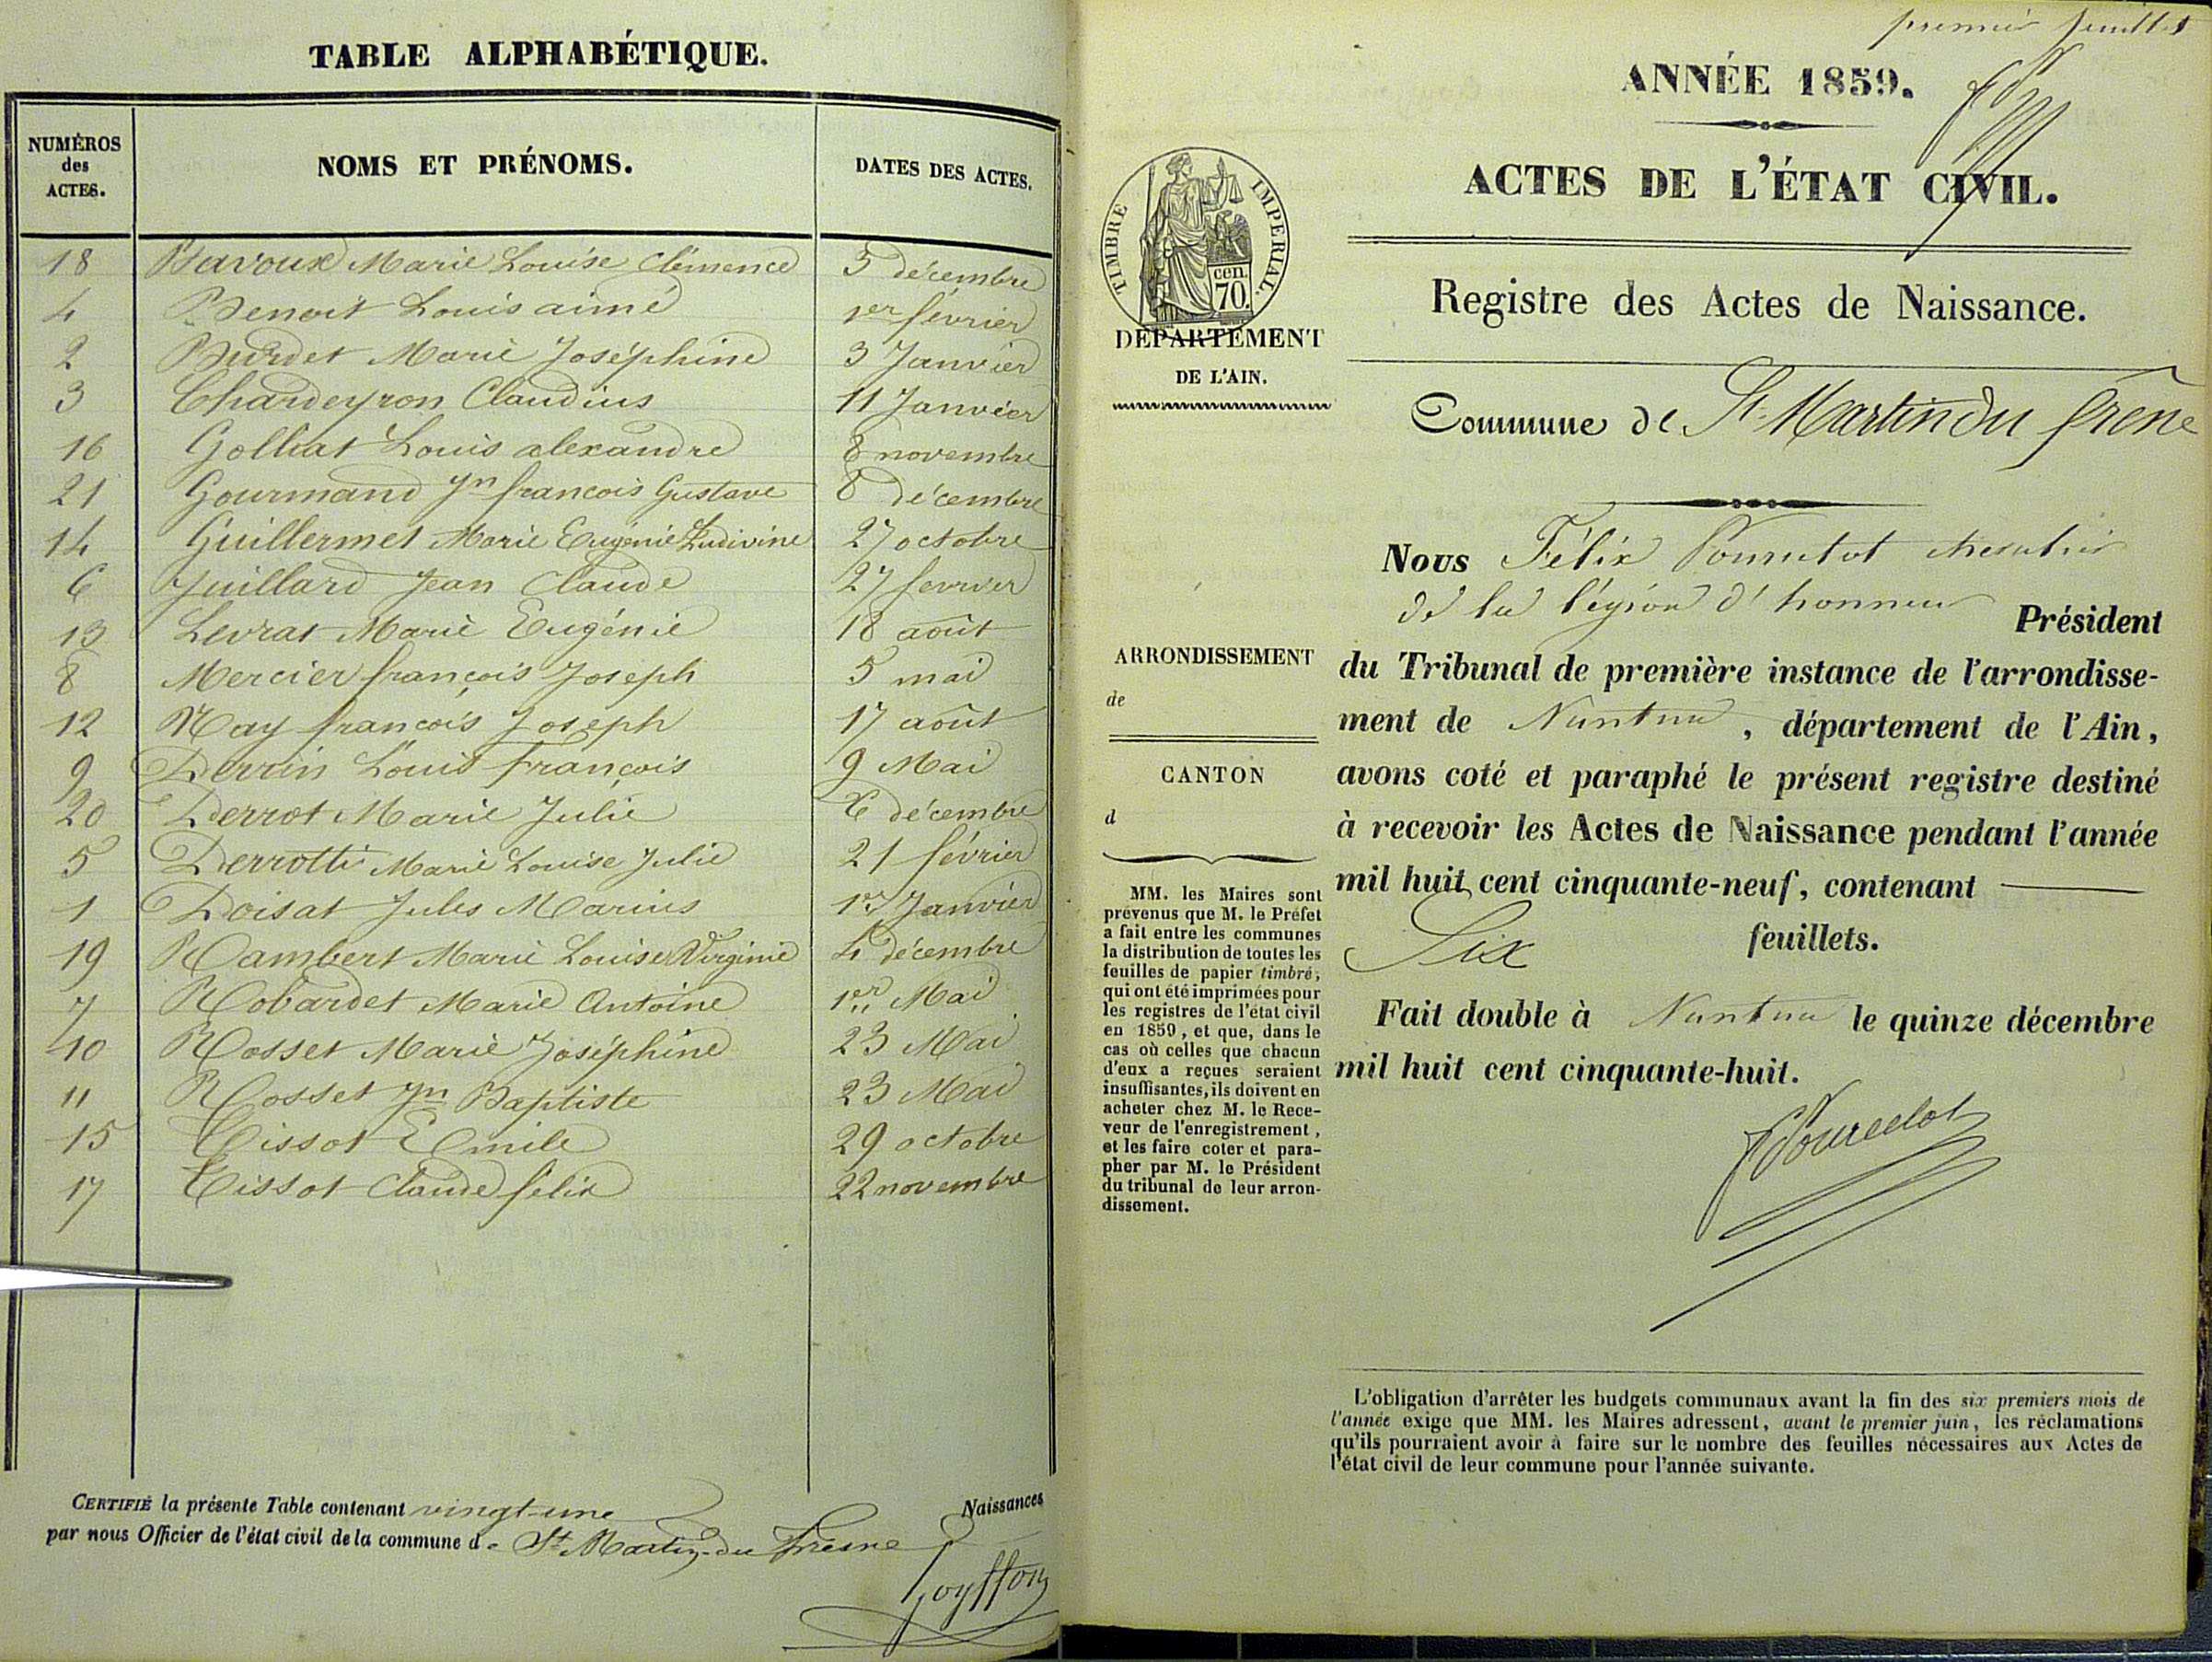 TABLE ALPHABÉTIQUE.
NUMÉROS des ACTES.
NOMS ET PRÉNOMS.
DATES DES ACTES.
18 Bavoux Marie Louise Clémence 5 décembre
4 Benoit Louis aimé 1er février
2 Burdet Marie Joséphine 3 Janvier
3 Chardeyron Claudius 11 Janvier
16 Golliat Louis alexandre 8 novembre
21 Gourmand Jn françois Gustave 8 décembre
14 Guillermet Marie Eugénie Ludivine 27 octobre
6 Juillard Jean Claude 27 fevrier
13 Levrat Marie Eugénie 18 août
8 Mercier françois Joseph 5 mai
12 Nay françois Joseph 17 août
9 Perrin Louis françois 9 Mai
20 Perrot Marie Julie 6 décembre
5 Perrotti Marie Louise Julie 21 février
1 Poisat Jules Marius 1er Janvier
19 Rambert Marie Louise Virginie 4 décembre
7 Robardet Marie Antoine 1er Mai
10 Rosset Marie Joséphine 23 Mai
11 Rosset Jn Baptiste 23 Mai
15 Tissot Emile 29 octobre
17 Tissot Claude felix 22 novembre
CERTIFIÉ la présente Table contenant vingt-une Naissances
par nous Officier de l'état civil de la commune de St Martin-du fresne
Goyffon
premier feuillet
ANNÉE 1859.
ACTES DE L'ÉTAT CIVIL.
TIMBRE IMPERIAL.
cen.
70.
DÉPARTEMENT
DE L'AIN.
Registre des Actes de Naissance.
Commune de St Martin du frêne
Nous Félix Pourcelot chevalier
de la légion d'honneur Président
ARRONDISSEMENT
de
CANTON
d
du Tribunal de première instance de l'arrondisse-
ment de Nantua, département de l'Ain,
avons coté et paraphé le présent registre destiné
à recevoir les Actes de Naissance pendant l'année
mil huit cent cinquante-neuf, contenant
Six feuillets.
Fait double à Nantua le quinze décembre
mil huit cent cinquante-huit.
FPourcelot
MM. les Maires sont
prévenus que M. le Préfet
a fait entre les communes
la distribution de toutes les
feuilles de papier timbré,
qui ont été imprimées pour
les registres de l'état civil
en 1859, et que, dans le
cas où celles que chacun
d'eux a reçues seraient
insuffisantes, ils doivent en
acheter chez M. le Rece-
veur de l'enregistrement,
et les faire coter et para-
pher par M. le Président
du tribunal de leur arron-
dissement.
L'obligation d'arrêter les budgets communaux avant la fin des six premiers mois de
l'année exige que MM. les Maires adressent, avant le premier juin, les réclamations
qu'ils pourraient avoir à faire sur le nombre des feuilles nécessaires aux Actes de
l'état civil de leur commune pour l'année suivante.